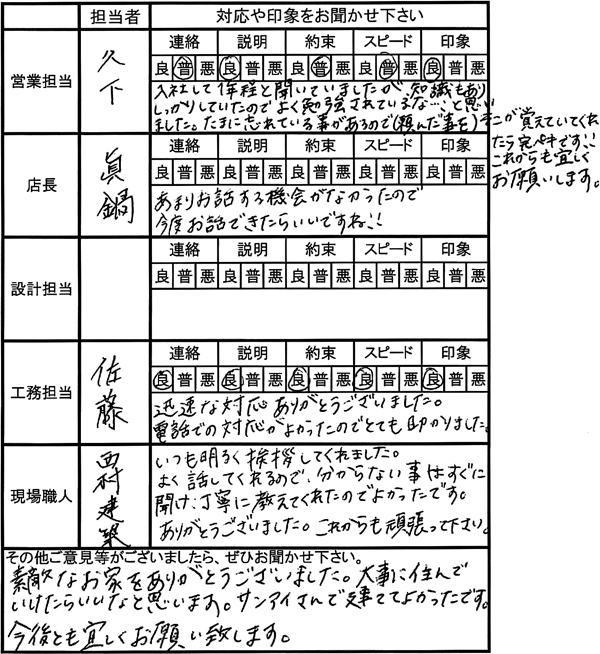 担当者 対応や印象をお聞かせ下さい
営業担当 久下
連絡 説明 約束 スピード 印象
良 普 悪 良 普 悪 良 普 悪 良 普 悪 良 普 悪
入社して1年程と聞いていましたが、知識もあり
しっかりしていたのでよく勉強されているな…、と思い
ました。たまに忘れている事があるので(頼んだ事を)そこが覚えていてくれ
たら完ペキです!!
これからも宜しく
お願いします。
店長 眞鍋
連絡 説明 約束 スピード 印象
良 普 悪 良 普 悪 良 普 悪 良 普 悪 良 普 悪
あまりお話する機会がなかったので
今度お話できたらいいですね!!
設計担当
連絡 説明 約束 スピード 印象
良 普 悪 良 普 悪 良 普 悪 良 普 悪 良 普 悪
工務担当 佐藤
連絡 説明 約束 スピード 印象
良 普 悪 良 普 悪 良 普 悪 良 普 悪 良 普 悪
迅速な対応ありがとうございました。
電話での対応がよかったのでとても助かりました。
現場職人 西村建築
いつも明るく挨拶してくれました。
よく話してくれるので、分からない事はすぐに
聞け、丁寧に教えてくれたのでよかったです。
ありがとうございました。これからも頑張って下さい。
その他ご意見等がございましたら、ぜひお聞かせ下さい。
素敵なお家をありがとうございました。大事に住んで
いけたらいいなと思います。サンアイさんで建ててよかったです。
今後とも宜しくお願い致します。